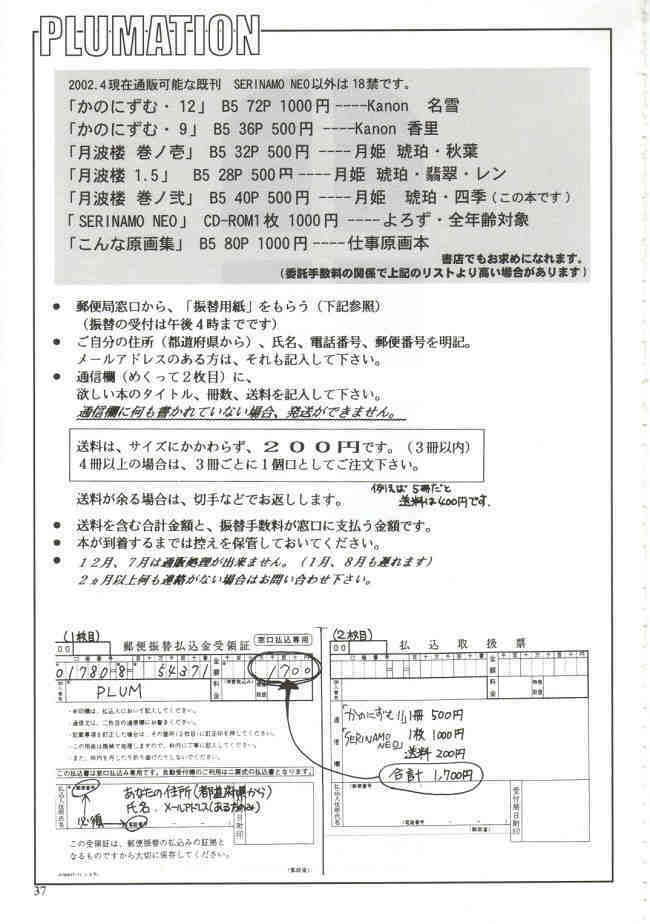 PLUMATION
2002.4現在通販可能な既刊 SERINAMO NEO以外は18禁です。
「かのにずむ・12」 B5 72P 1000円 ----Kanon 名雪
「かのにずむ・9」 B5 36P 500円 ----Kanon 香里
「月波楼 巻ノ壱」 B5 32P 500円 ----月姫 琥珀・秋葉
「月波楼 1.5」 B5 28P 500円 ----月姫 琥珀・翡翠・レン
「月波楼 巻ノ弐」 B5 40P 500円 ----月姫 琥珀・四季(この本です)
「SERINAMO NEO」 CD-ROM1枚 1000円 ----よろず・全年齢対象
「こんな原画集」 B5 80P 1000円----仕事原画本
書店でもお求めになれます。
(委託手数料の関係で上記のリストより高い場合があります)
● 郵便局窓口から、「振替用紙」をもらう(下記参照)
(振替の受付は午後4時までです)
● ご自分の住所(都道府県から)、氏名、電話番号、郵便番号を明記。
メールアドレスのある方は、それも記入して下さい。
● 通信欄(めくって2枚目)に、
欲しい本のタイトル、冊数、送料を記入して下さい。
通信欄に何も書かれていない場合、発送ができません。
送料は、サイズにかかわらず、200円です。(3冊以内)
4冊以上の場合は、3冊ごとに1個口としてご注文下さい。
送料が余る場合は、切手などでお返しします。
例えば5冊だと
送料は400円です.
● 送料を含む合計金額と、振替手数料が窓口に支払う金額です。
● 本が到着するまでは控えを保管しておいてください。
● 12月、7月は通販処理が出来ません。(1月、8月も遅れます)
2ヵ月以上何も連絡がない場合はお問い合わせ下さい。
(1枚目)
00
郵便振替払込金受領証
窓口払込専用
口座番号
01780=8= 54371
金額
1700
加入者名
PLUM
料金
この払込書は窓口払込み専用です。自動受付機のご利用は二票式の払込書となります。
払込人住所氏名
郵便番号
あなたの住所(都道府県から)
氏名. メールアドレス(ある方のみ)
必須
電話番号
この受領証は、郵便振替の払込みの証拠と
なるものですから大切に保存してください。
(郵政省)
(2枚目)
00
払込取扱票
口座番号
金額
加入者名
料金
通信欄
「かのにずむ」1冊 500円
「SERINAMO NEO」 1枚 1000円
送料 200円
合計 1,700円
払込人住所氏名
(郵便番号
(電話番号
受付局日附印
(郵政省)
37